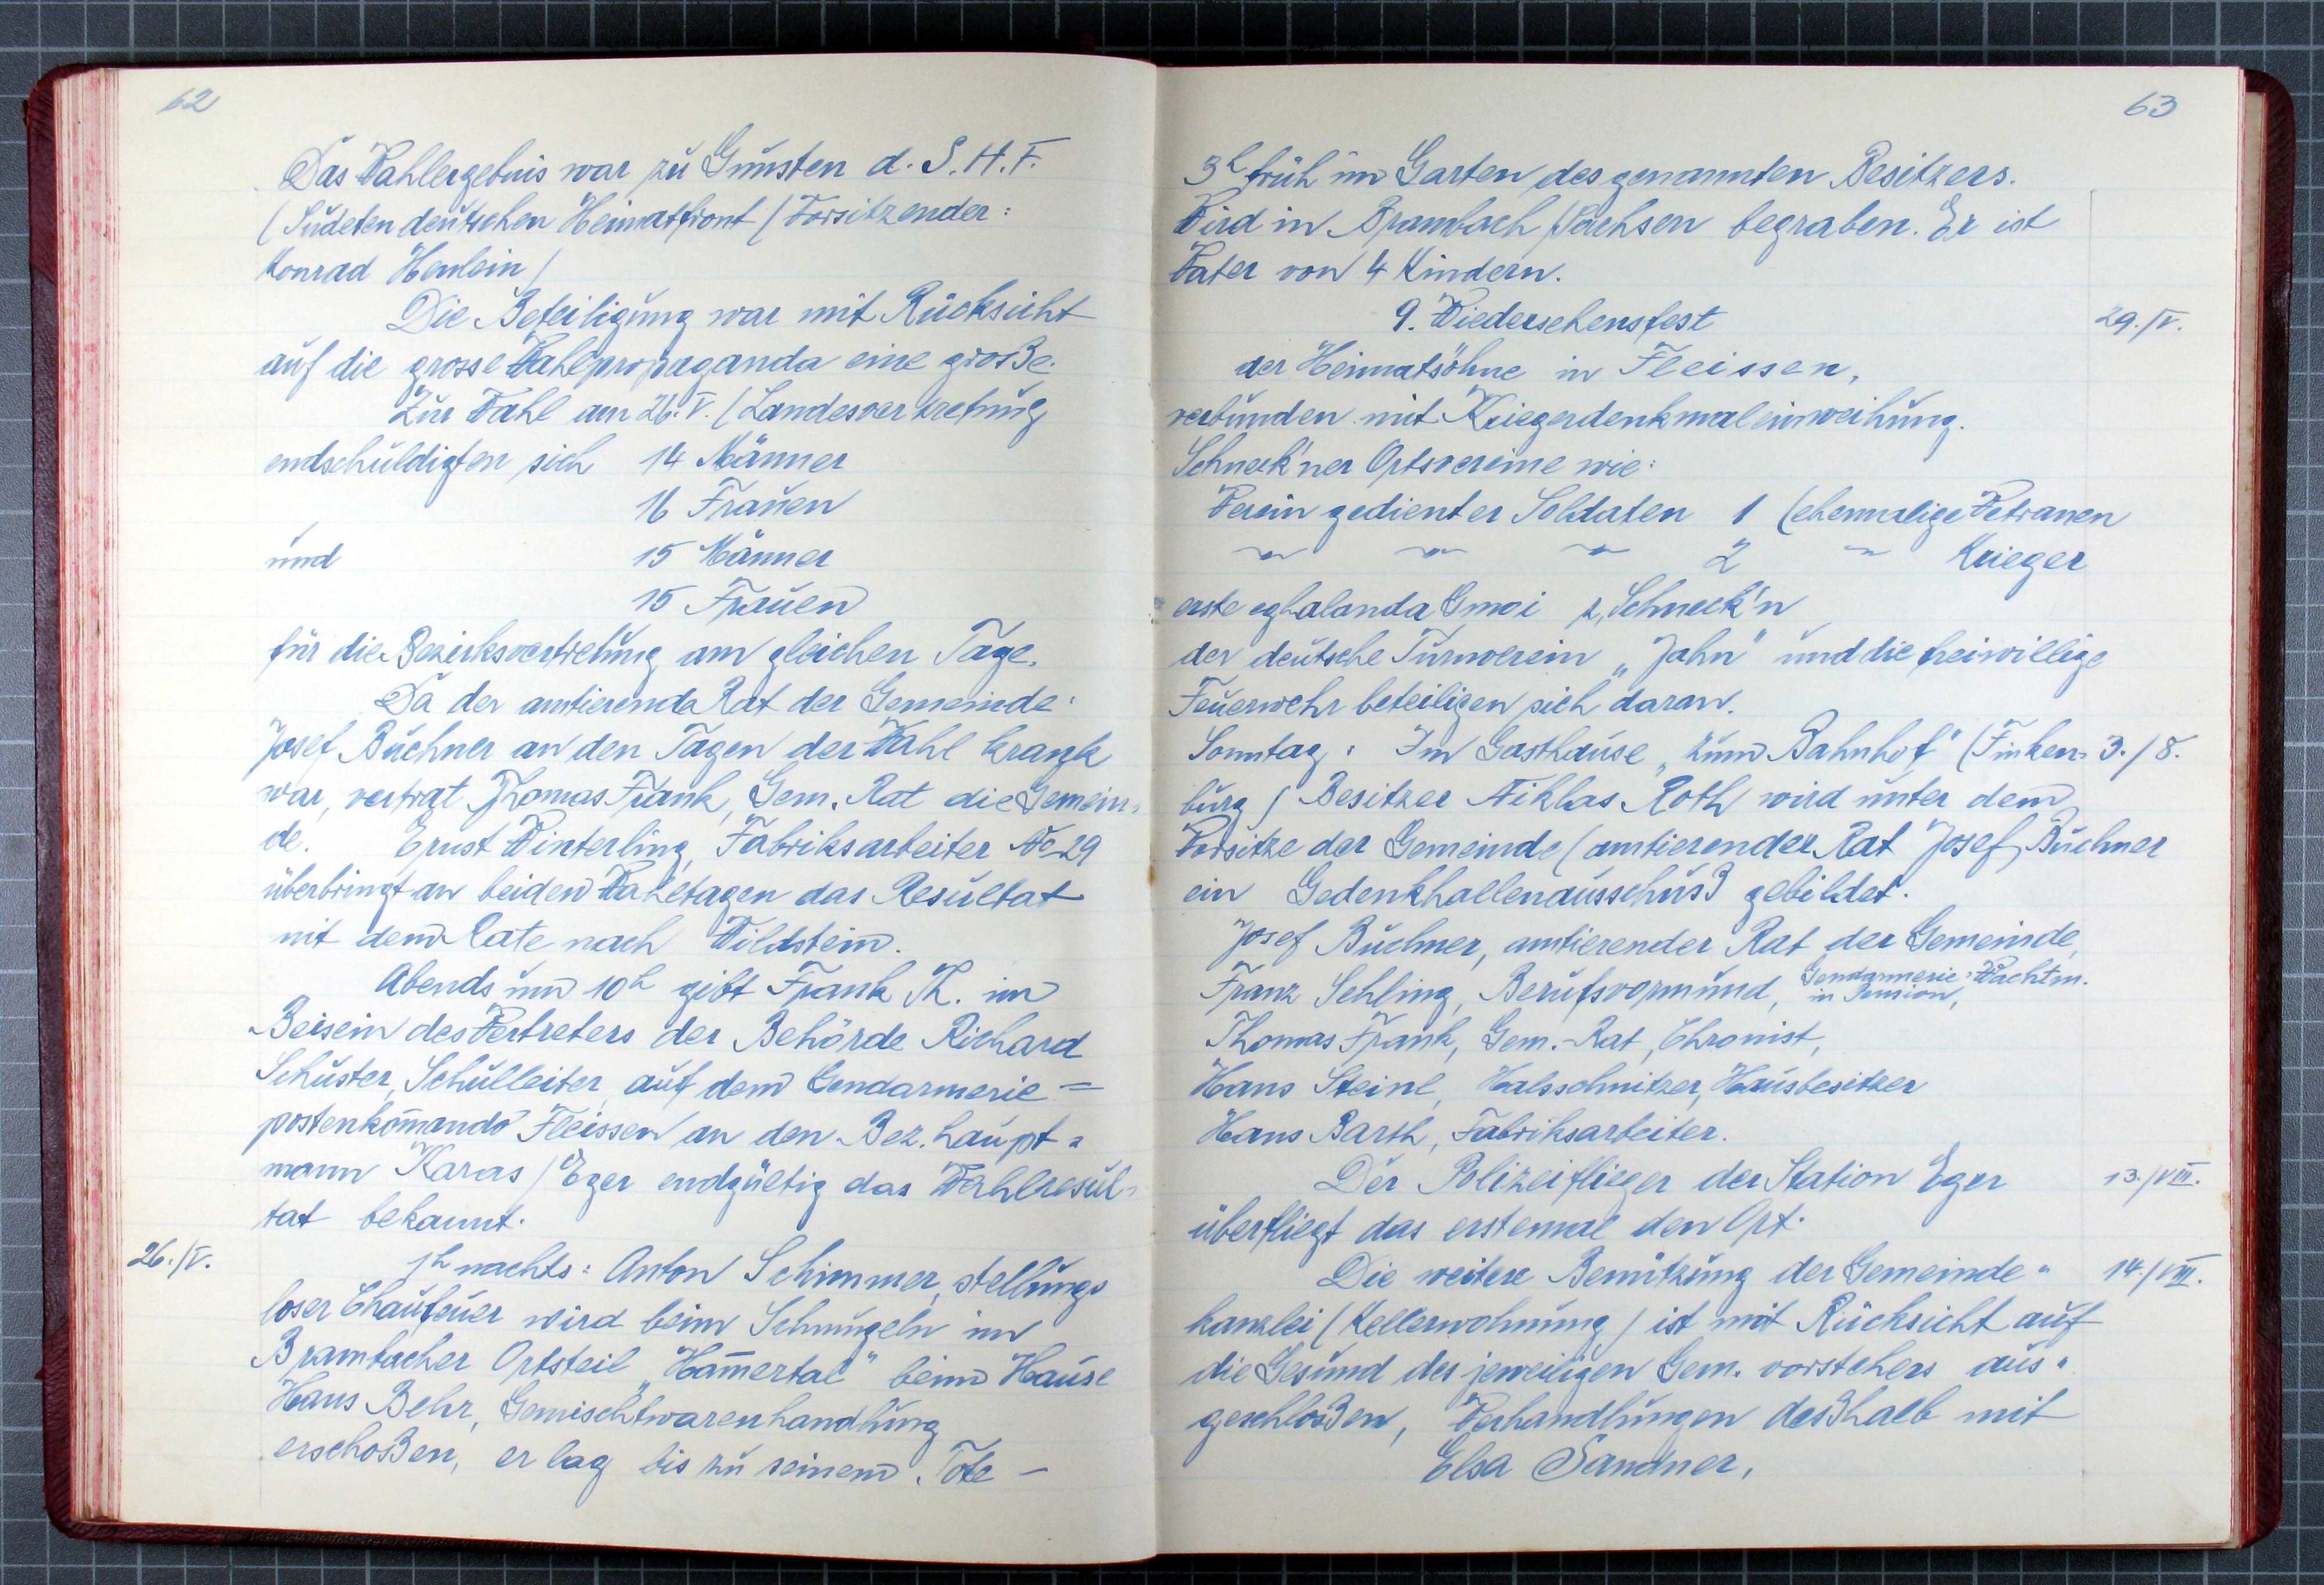 62
Das Wahlergebnis war zu Gunsten d. S. H. F.
(Sudetendeutschen Heimatfront / Vorsitzender:
Konrad Henlein /
Die Beteiligung war mit Rücksicht
auf die grosse Wahlpropaganda eine große.
Zur Wahl am 26. V. (Landesvertretung
endschuldigten sich 14 Männer
16 Frauen
und 15 Männer
15 Frauen
für die Bezirksvertretung am gleichen Tage.
Da der amtierende Rat der Gemeinde:
Josef Büchner an den Tagen der Wahl krank
war, vertrat Thomas Frank, Gem. Rat die Gemein-
de. Ernst Winterling, Fabriksarbeiter No 29
überbringt an beiden Wahltagen das Resultat
mit dem Rate nach Wildstein.
Abends um 10h gibt Frank Th. im
Beisein des Vertreters der Behörde Richard
Schuster, Schulleiter, auf dem Gendarmerie=
postenkom̄ando Fleissen an den Bez. haupt=
mann Karas / Eger endgültig das Wahlresul=
tat bekannt.
26./V. 1h nachts: Anton Schimmer, stellungs
loser Chaufeuer wird beim Schmugeln im
Brambacher Ortsteil „Ham̄ertal" beim Hause
Hans Behr, Gemischtwarenhandlung
erschoßen, er lag bis zu seinem Tote -
63
3h früh im Garten des genannten Besitzers.
Wird in Brambach / Sachsen begraben. Er ist
Vater von 4 Kindern.
9. Wiedersehensfest 29./V.
der Heimatsöhne in Fleissen,
verbunden mit Kriegerdenkmaleinweihung.
Schneck'ner Ortsvereine wie:
Verein gedienter Soldaten 1 (ehemalige Vetranen
" " " 2 " Krieger
erste eghalanda Gmoi z, Schneck'n
der deutsche Turnverein „Jahn" und die freiwillige
Feuerwehr beteiligen sich daran.
Sonntag: Im Gasthause „zum Bahnhof" (Finken= 3./8.
burg / Besitzer Niklas Roth wird unter dem
Vorsitze der Gemeinde (amtierender Rat Josef Büchner
ein Gedenkhallenausschuß gebildet.
Josef Büchner, amtierender Rat der Gemeinde,
Franz Sehling, Berufsvormund, Gendarmerie=Wachtm.
in Pension,
Thomas Frank, Gem.-Rat, Chronist,
Hans Steinl, Halsschnitzer, Hausbesitzer
Hans Barth, Fabriksarbeiter.
Der Polizeiflieger der Station Eger 13./VIII.
überfliegt das erstemal den Ort.
Die weitere Benützung der Gemeinde= 14./VIII.
kanzlei / Kellerwohnung / ist mit Rücksicht auf
die Gesund des jeweiligen Gem. vorstehers aus=
geschloßen, Verhandlungen deßhalb mit
Elsa Sandner,